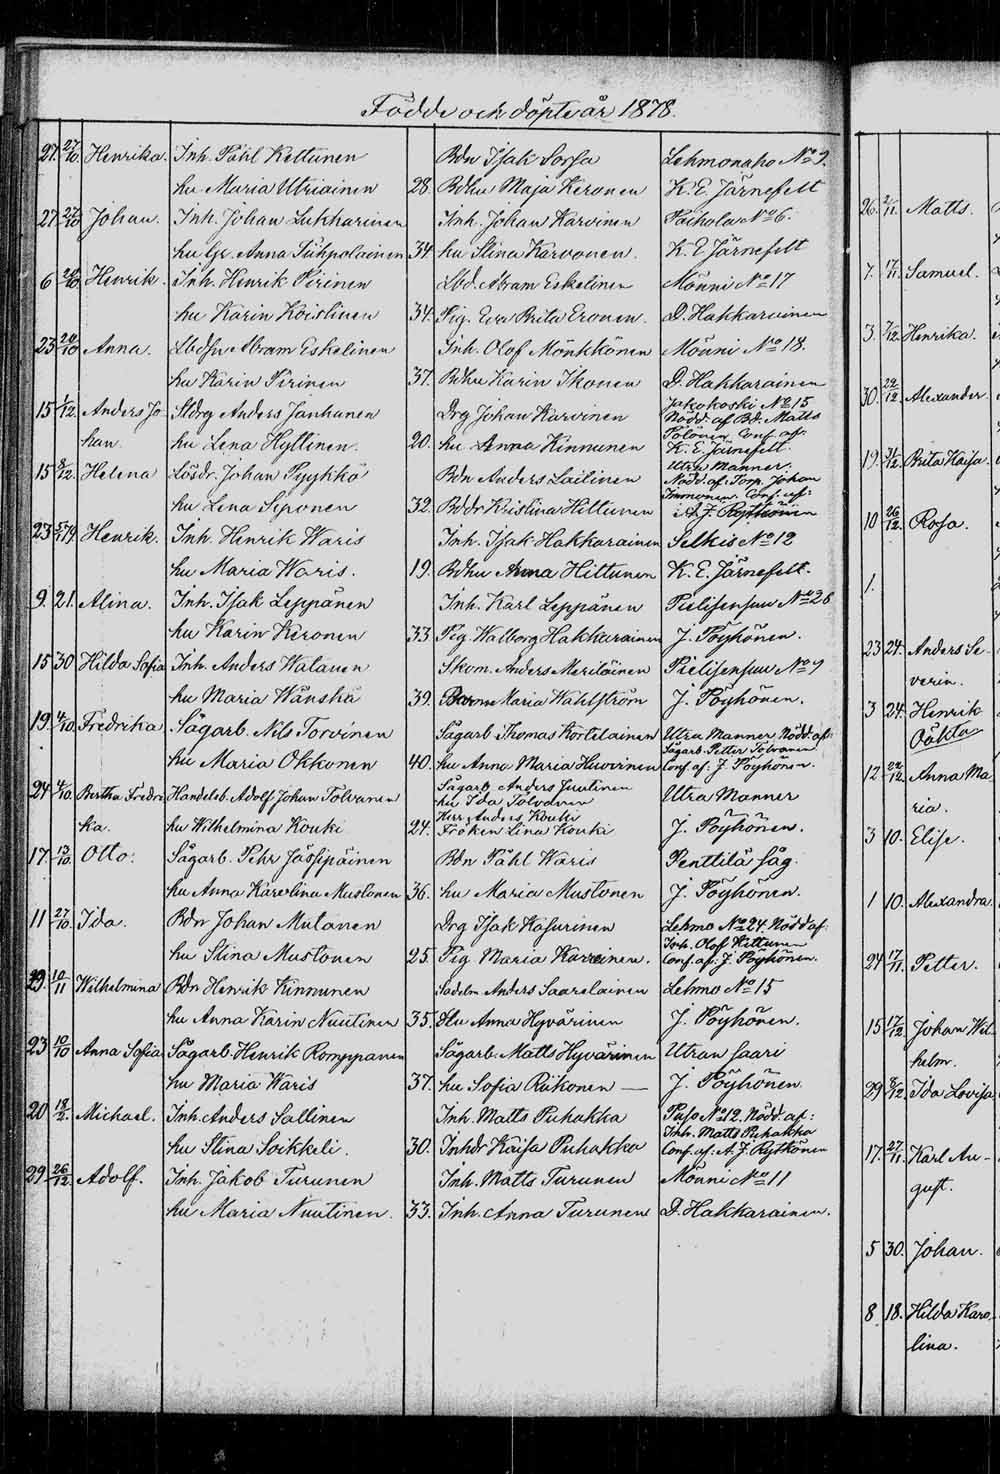 Födde och döpte år 1878.
27. 27/10. Henrika. Inh. Påhl Kettunen Bdn Isak Sorsa Lehmonaho No 9.
hu Maria Utriainen 28. Bdhu Maja Keronen K. E. Järnefelt
27. 27/10 Johan. Inh. Johan Lukkarinen Inh. Johan Karvinen Paihola No 6.
hu Anna Tuhpolainen 34. hu Stina Karvonen. K. E. Järnefelt
6 20/10 Henrik. Inh. Henrik Pirinen Lbd. Abram Eskelinen Mönni No 17
hu Karin Koistinen 34. Pig. Eva Brita Eronen. D. Hakkarainen
23 20/10 Anna. Lbdsn Abram Eskelinen Inh. Olof Mönkkönen Mönni No 18.
hu Karin Pirinen 37. Bdhu Karin Ikonen D. Hakkarainen
15 1/12. Anders Jo Sldrg Anders Janhunen Drg Johan Karvinen Jakokoski No 15
Nödd. af Bd: Matts
han. hu Lena Hyttinen. 20. hu Anna Kinnunen Pölönen Conf. af:
K. E. Järnefelt.
15 8/12. Helena Lösdr. Johan Pyykkö Bdn Anders Laitinen Utra Manner.
Nödd. af: Torp. Johan
Immonen. Conf. af:
hu Lena Seponen 32. Bddr Kristina Hiltunen A. J. Rytkönen
23 5/1 79. Henrik. Inh. Henrik Waris Inh. Isak Hakkarainen Selkis No 12
hu Maria Waris. 19. Bdhu Anna Hiltunen K. E. Järnefelt.
9. 21. Alina. Inh. Isak Leppänen Inh. Karl Leppänen Pielisensuu No 26
hu Karin Keronen 33. Pig. Walborg Hakkarainen J. Pöyhönen.
15 30 Hilda Sofia Inh. Anders Watanen Skom. Anders Meriläinen Pielisensuu No 9
hu Maria Wänskä 39. Maria Wahlström J. Pöyhönen.
19. 4/10. Fredrika Sågarb. Nils Torvinen Sågarb Thomas Kortelainen Utra Manner Nödd. af:
Sågarb. Petter Tolvanen
hu Maria Okkonen 40. hu Anna Maria Huvrinen Conf. af: J. Pöyhönen.
24 4/10. Bertha Fredri Handelsb. Adolf Johan Tolvanen Sågarb. Anders Juutinen
hu Ida Tolvanen Utra Manner
ka. hu Wilhelmina Kouki 24. Herr Anders Kouki
Fröken Lina Kouki J. Pöyhönen.
17. 13/10. Otto. Sågarb. Pehr Jässipäinen Bdn Påhl Waris Penttilä såg.
hu Anna Karolina Mustonen 36. hu Maria Mustonen J. Pöyhönen.
11 27/10. Ida. Bdn Johan Mutanen Drg Isak Kasurinen Lehmo No 24. Nödd af:
Inh. Olof Kettunen
hu Stina Mustonen 25. Pig. Maria Karvinen. Conf. af: J. Pöyhönen.
29. 10/11 Wilhelmina Bdn Henrik Kinnunen Sadelm Anders Saarelainen Lehmo No 15
hu Anna Karin Nuutinen 35. Hu Anna Hyvärinen J. Pöyhönen.
23 10/10 Anna Sofia Sågarb. Henrik Romppanen Sågarb. Matts Hyvärinen Utran saari
hu Maria Waris 37. hu Sofia Riikonen — J. Pöyhönen.
20 18/2. Michael. Inh. Anders Sallinen Inh. Matts Puhakka Puso No 12. Nödd. af:
Inh. Matts Puhakka
hu Stina Soikkeli. 30. Inhdr Kaisa Puhakka Conf. af: A. J. Rytkönen
29. 26/12. Adolf. Inh. Jakob Turunen Inh. Matts Turunen Mönni No 11
hu Maria Nuutinen. 33. Inh. Anna Turunen D. Hakkarainen.
26. 2/11. Matts.
7. 17/11. Samuel.
3. 7/12. Henrika.
30. 29/12. Alexander.
19. 31/12. Brita Kaisa.
10 26/12. Rosa.
1.
23 24. Anders Se-
verin.
3 24. Henrik
Oäkta
12 22/12. Anna Ma
ria.
3 10. Elise.
1 10. Alexandra.
24 17/11. Petter.
15 17/12 Johan Wil-
helm.
29 8/12. Ida Lovisa
17. 27/11. Karl Au-
gust.
5 30. Johan.
8 18. Hilda Karo
lina.